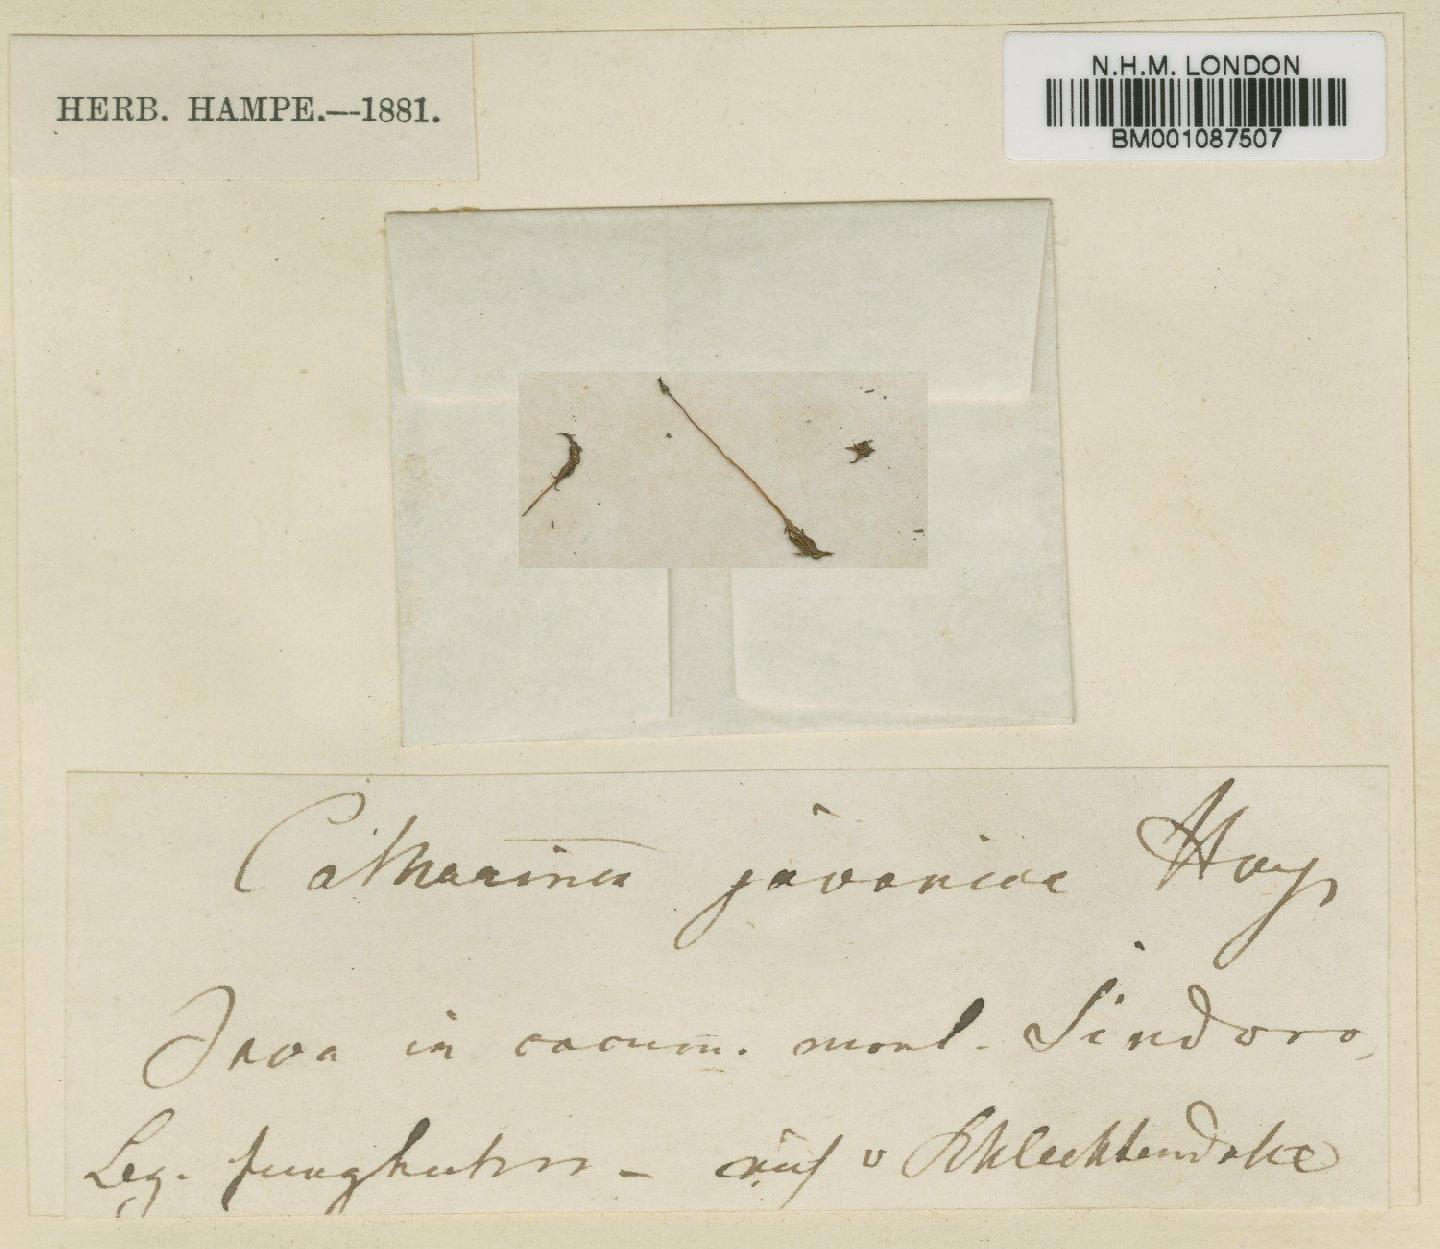 HERB. HAMPE.—1881.
N.H.M. LONDON
BM001087507
Catharinea javanica Hmp
Java in cacum. mont. Sindoro,
Leg. Junghuhn – v Schlechtendahl